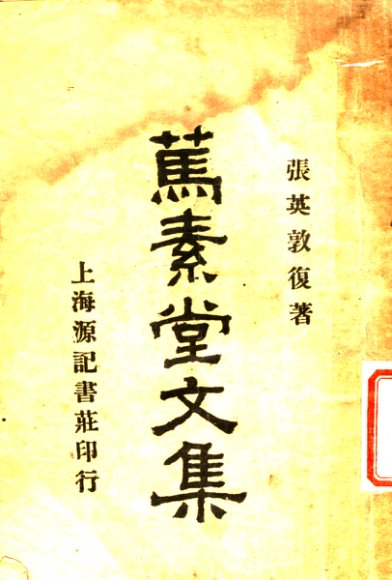 張英敦復著
篤素堂文集
上海源記書莊印行